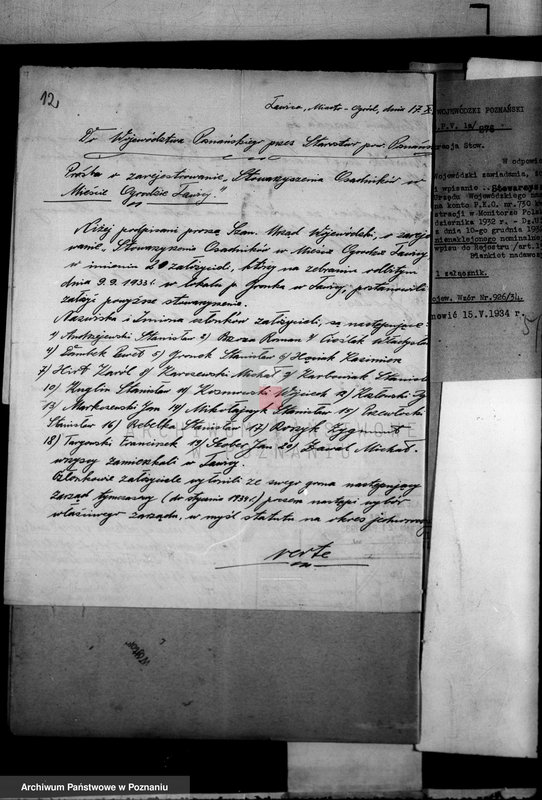 12
Ławica, Miasto-Ogród, dnia 17 X.
Do Województwa Poznańskiego przez Starostwo pow. Poznań
Prośba o zarejestrowanie „Stowarzyszenia Osadników w
Mieście Ogrodzie Ławicy."
Niżej podpisani proszą Szan. Urząd Wojewódzki, o zareje
wanie „Stowarzyszenia Osadników w Mieście Ogrodzie Ławicy
w imieniu 20 założycieli, którzy na zebraniu odbytym
dnia 9.9.1933 r. w lokalu p. Gronka w Ławicy, postanowili
założyć powyższe stowarzyszenie.
Nazwiska i Imiona członków założycieli, są następujące:
1) Andrzejewski Stanisław 2) Roman 3) Cieślak Władysła
4) 5) Gronek Stanisław 6) Kazimierz
7) Hirt Karól 8) Karszewski Michał 9) Karbowiak Stanisła
10) Kuglin Stanisław 11) Wojciech 12)
13) Markszewski Jan 14) Mikołajczak Stanisław 15)
Stanisław 16) Rebelka Stanisław 17) Roszyk Zygmunt
18) Targowski Franciszek 19) Szober Jan 20) Michał.
wszyscy zamieszkali w Ławicy.
Członkowie założyciele wyłonili ze swego grona następujący
zarząd tymczasowy (do stycznia 1934 r.) poczem nastąpi wybór
właściwego zarządu, w myśl statutu na okres jednoroczny
verte
WOJEWÓDZKI POZNAŃSKI
.P.V. 1a/ 878
racja Stow.
W odpowie
Wojewódzki zawiadamia, że
i wpisanie . Stowarzysz
Urzędu Wojewódzkiego
na konto P.K.O. nr. 730 kw
stracji w Monitorze Polsk
dziernika 1932 r. - Dz.U.
z dnia 10-go grudnia 1932
niemaklejonego nominalnej
wpisu do Rejestru /art.
Blankiet nadawczy
1 załącznik.
ojew. Wzór Nr. 926/34.
nowić 15.V.1934 r.
ARCHIWUM PAŃSTWOWE
W POZNANIU
Archiwum Państwowe w Poznaniu